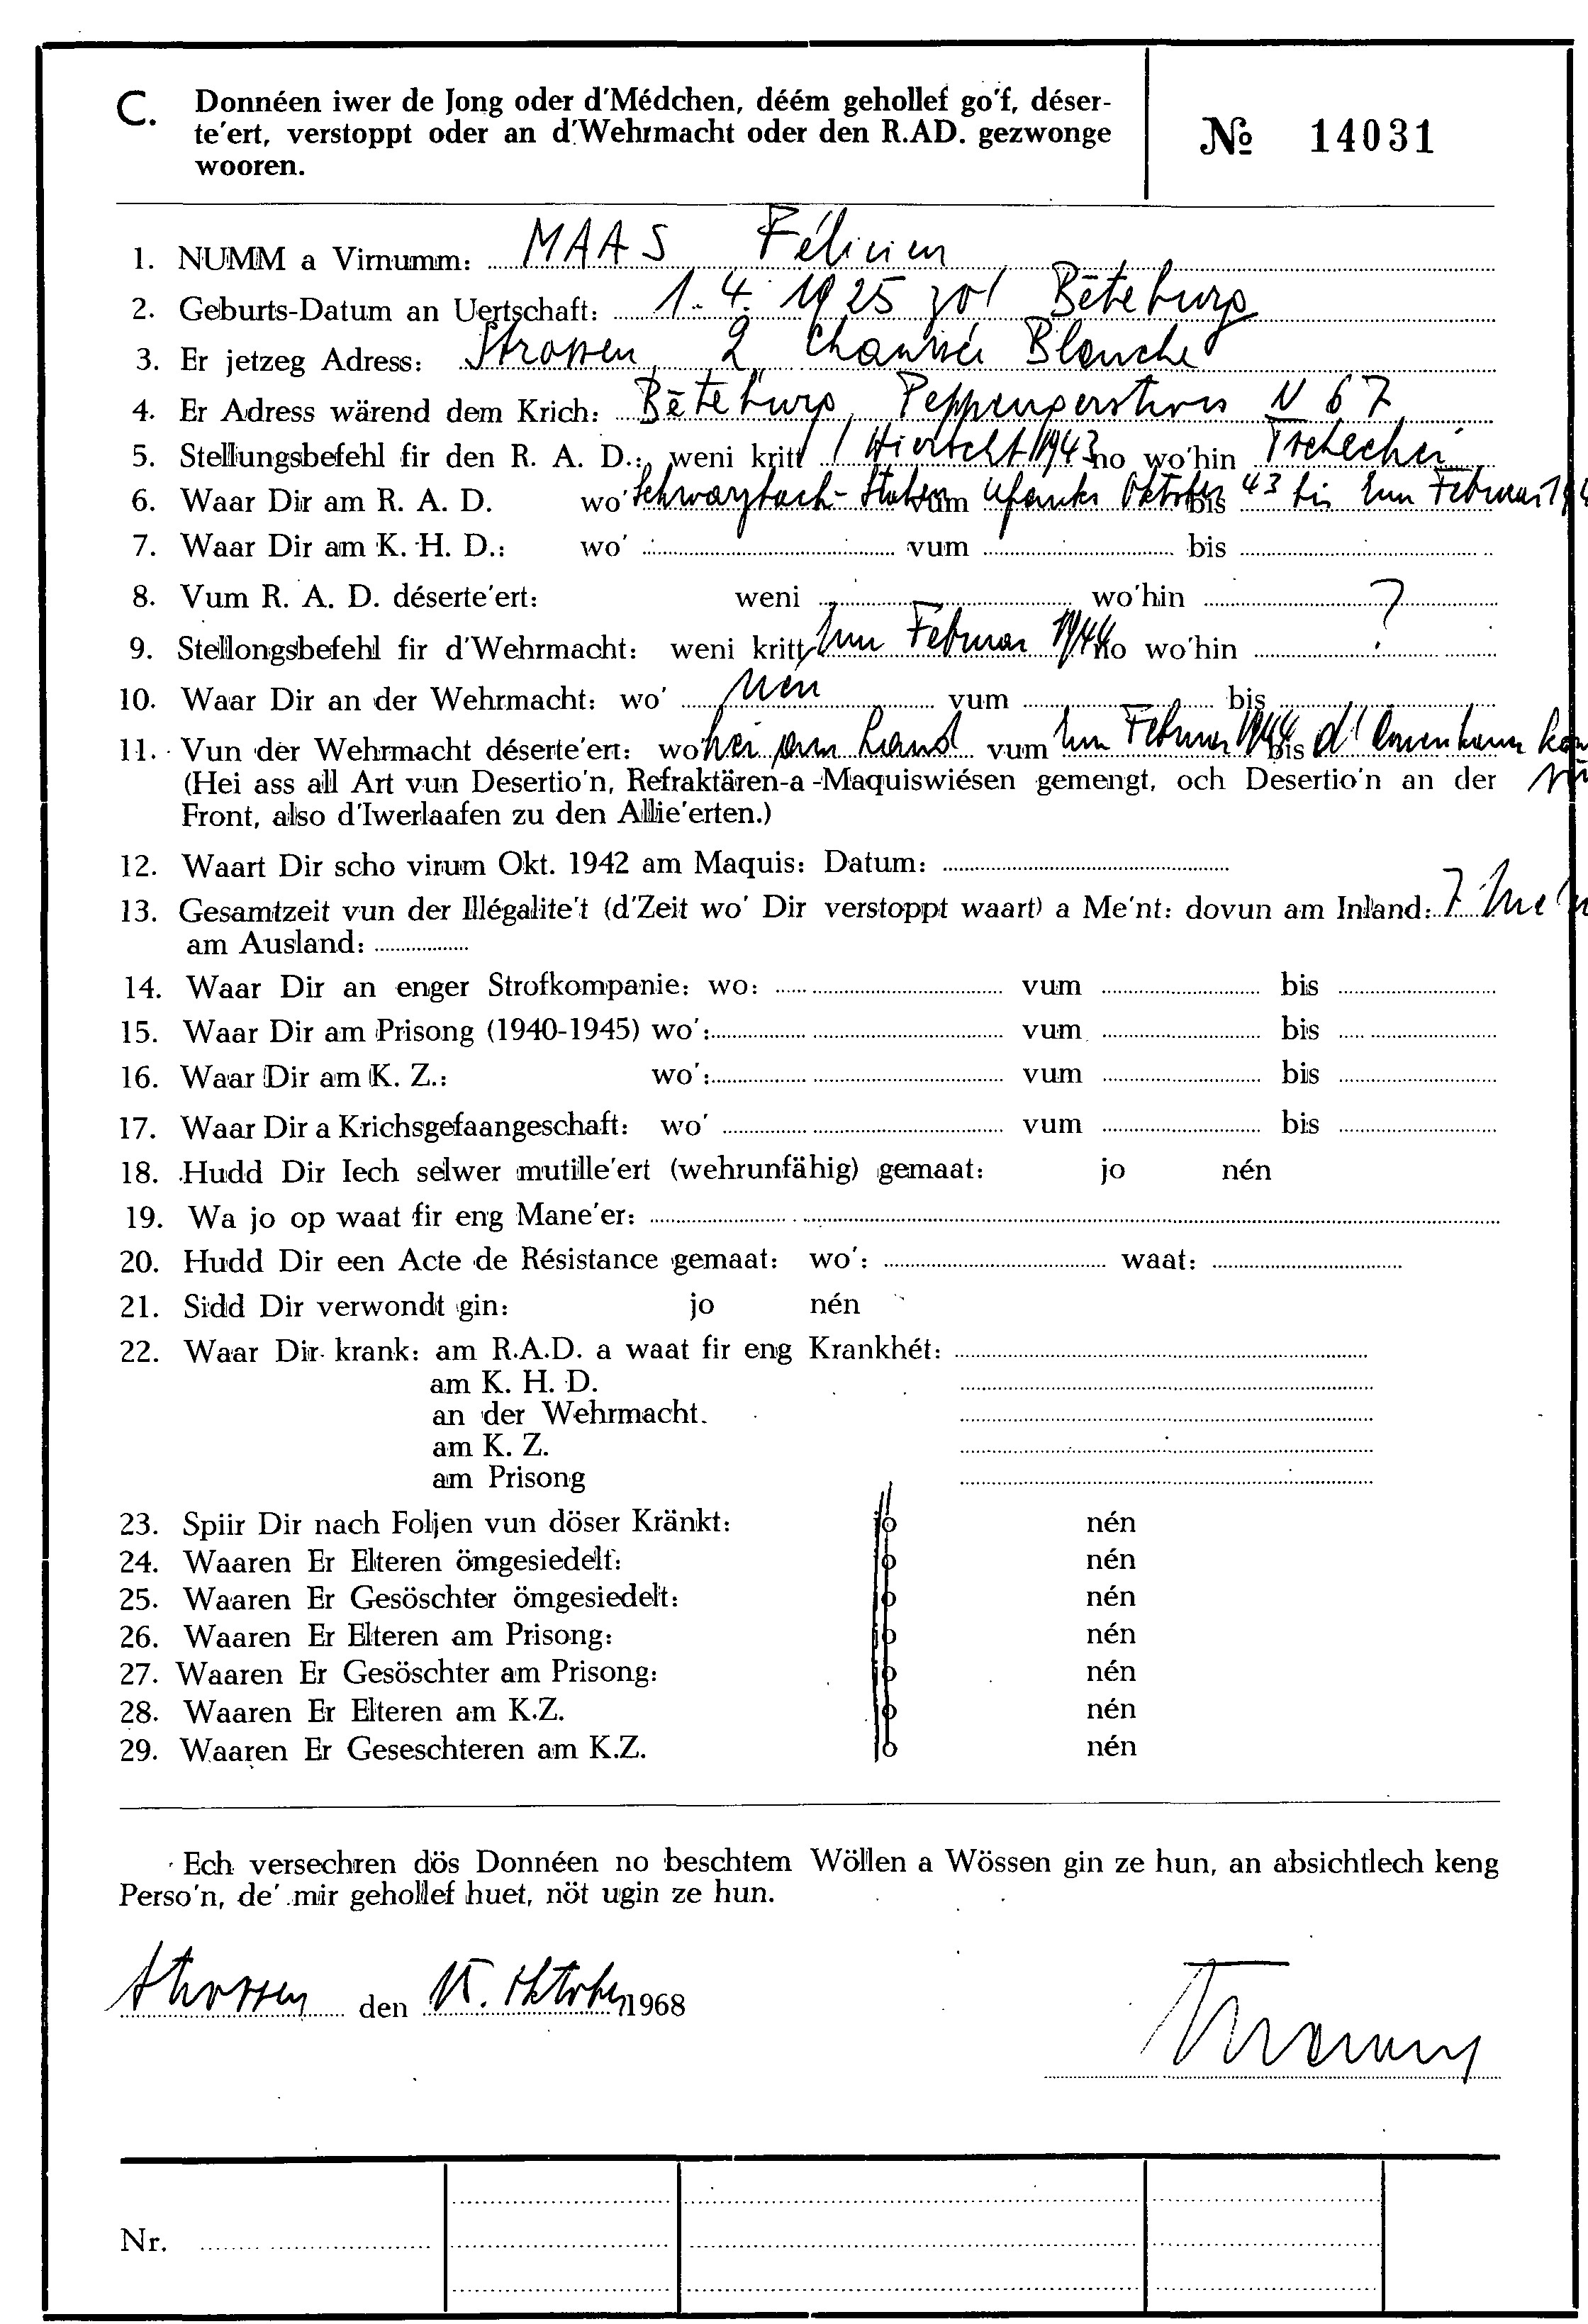 C. Donnéen iwer de Jong oder d'Médchen, déém gehollef go'f, déser-
te'ert, verstoppt oder an d'Wehrmacht oder den R.AD. gezwonge
wooren.
№ 14031
1. NUMM a Virnumm: MAAS Félicien
2. Geburts-Datum an Uertschaft: 1. 4. 1925 zo' Béteburg
3. Er jetzeg Adress: Strossen, 2 Chaussée Blanche
4. Er Adress wärend dem Krich: Béteburg, Peppengerstross N 67
5. Stellungsbefehl fir den R. A. D.: weni kritt Hierscht 1943 no wo'hin Tschechei
6. Waar Dir am R. A. D. wo' Schwarzbach- vum Oktober 43 bis Februar
7. Waar Dir am K. H. D.: wo' vum bis
8. Vum R. A. D. déserte'ert: weni wo'hin ?
9. Stellongsbefehl fir d'Wehrmacht: weni kritt Februar 1944 no wo'hin
10. Waar Dir an der Wehrmacht: wo' nén vum bis
11. Vun der Wehrmacht déserte'ert: wo hei am Land vum Februar 1944 bis d'
(Hei ass all Art vun Desertio'n, Refraktären-a -Maquiswiésen gemengt, och Desertio'n an der
Front, also d'Iwerlaafen zu den Allie'erten.)
12. Waart Dir scho virum Okt. 1942 am Maquis: Datum:
13. Gesamtzeit vun der Illégalite't (d'Zeit wo' Dir verstoppt waart) a Me'nt: dovun am Inland: 7
am Ausland:
14. Waar Dir an enger Strofkompanie: wo: vum bis
15. Waar Dir am Prisong (1940-1945) wo': vum bis
16. Waar Dir am K. Z.: wo': vum bis
17. Waar Dir a Krichsgefaangeschaft: wo' vum bis
18. Hudd Dir Iech selwer mutille'ert (wehrunfähig) gemaat: jo nén
19. Wa jo op waat fir eng Mane'er:
20. Hudd Dir een Acte de Résistance gemaat: wo': waat:
21. Sidd Dir verwondt gin: jo nén
22. Waar Dir krank: am R.A.D. a waat fir eng Krankhét:
am K. H. D.
an der Wehrmacht.
am K. Z.
am Prisong
23. Spiir Dir nach Foljen vun döser Kränkt: jo nén
24. Waaren Er Elteren ömgesiedelt: jo nén
25. Waaren Er Gesöschter ömgesiedelt: jo nén
26. Waaren Er Elteren am Prisong: jo nén
27. Waaren Er Gesöschter am Prisong: jo nén
28. Waaren Er Elteren am K.Z. jo nén
29. Waaren Er Geseschteren am K.Z. jo nén
Ech versechren dös Donnéen no beschtem Wöllen a Wössen gin ze hun, an absichtlech keng
Perso'n, de' mir gehollef huet, nöt ugin ze hun.
Strossen den 15. Oktober 1968
Nr.